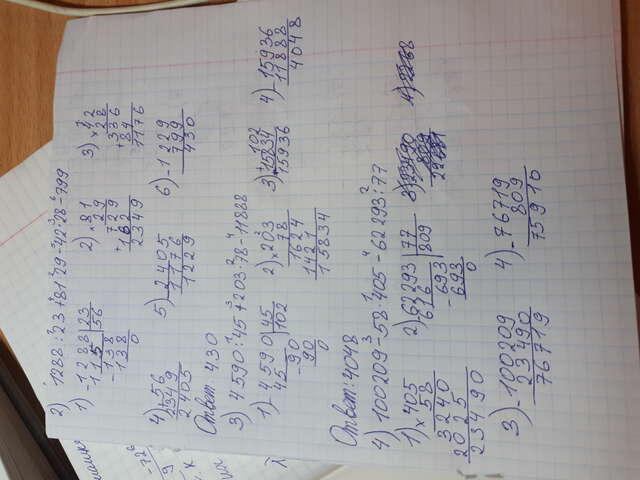 2) 1288:23+81·29-42·28-799
1) 1288 | 23
-115 | 56
138
-138
0
2) ×81
29
729
+162
2349
3) ×42
28
+336
84
1176
4) +56
2349
2405
5) -2405
1176
1229
6) -1229
799
430
Ответ: 430
3) 4590:45+203·78-11888
1) -4590 | 45
45 | 102
-90
90
0
2) ×203
78
1624
1421
15834
3) +102
15834
15936
4) -15936
11888
4048
Ответ: 4048
4) 100209-58·405-62293:77
1) ×405
58
3240
2025
23490
2) -62293 | 77
616 | 809
-693
693
0
3) -100209
23490
76719
4) -76719
809
75910